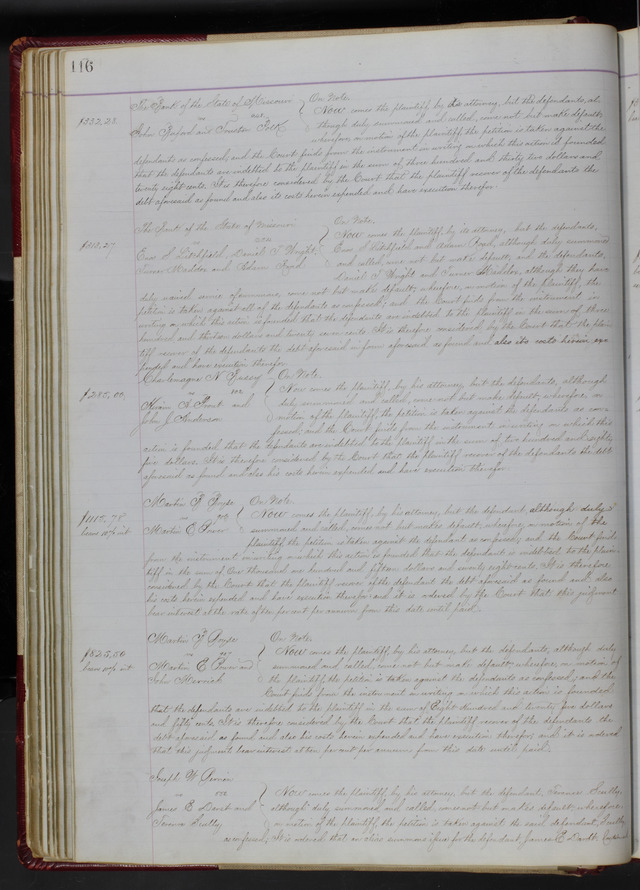 116
The Bank of the State of Missouri
vs
John and Trusten Polk
On Note.
$332.28.
Now comes the plaintiff by its attorney, but the defendants, al-
though duly summoned and called, come not but make default;
wherefore, on motion of the plaintiff the petition is taken against the
defendants as confessed, and the Court finds from the instrument in writing on which this action is founded
that the defendants are indebted to the plaintiff in the sum of three hundred and thirty two dollars and
twenty eight cents. It is therefore considered by the Court that the plaintiff recover of the defendants the
debt aforesaid as found and also its costs herein expended and have execution therefor.
The Bank of the State of Missouri
vs
Enos S. Litchfield, Daniel T. Wright,
and Adam
On Note.
$313.27
Now comes the plaintiff, by its attorney, but the defendants,
Enos S. Litchfield and Adam although duly summoned
and called, come not but make default; and the defendants,
Daniel T. Wright and although they have
duly waived service of summons, come not but make default; wherefore, on motion of the plaintiff, the
petition is taken against all of the defendants as confessed, and the Court finds from the instrument in
writing on which this action is founded that the defendants are indebted to the plaintiff in the sum of three
hundred and thirteen dollars and twenty seven cents. It is therefore considered by the Court that the plain-
tiff recover of the defendants the debt aforesaid in form aforesaid as found and also its costs herein ex-
pended and have execution therefor.
Charlemagne N.
vs
A. and
John J. Anderson
On Note.
$285.00.
Now comes the plaintiff, by his attorney, but the defendants, although
duly summoned and called, come not but make default; wherefore on
motion of the plaintiff, the petition is taken against the defendants as con-
fessed, and the Court finds from the instrument in writing on which this
action is founded that the defendants are indebted to the plaintiff in the sum of two hundred and eighty
five dollars. It is therefore considered by the Court that the plaintiff recover of the defendants the debt
aforesaid as found and also his costs herein expended and have execution therefor.
Martin F.
vs
Martin E.
On Note.
$1115.78
bears 10% int.
Now comes the plaintiff, by his attorney, but the defendant although duly
summoned and called comes not but makes default; wherefore, on motion of the
plaintiff the petition is taken against the defendant as confessed, and the Court finds
from the instrument in writing on which this action is founded that the defendant is indebted to the plain-
tiff in the sum of One thousand one hundred and fifteen dollars and seventy eight cents. It is therefore
considered by the Court that the plaintiff recover of the defendant the debt aforesaid as found and also
his costs herein expended and have execution therefor, and it is ordered by the Court that this judgment
bear interest at the rate of ten per cent per annum from this date until paid.
Martin F.
vs
Martin E. and
John
On Note.
$825.50
bears 10% int.
Now comes the plaintiff, by his attorney, but the defendants, although duly
summoned and called, come not but make default; wherefore, on motion of
the plaintiff the petition is taken against the defendants as confessed, and the
Court finds from the instrument in writing on which this action is founded
that the defendants are indebted to the plaintiff in the sum of Eight hundred and twenty five dollars
and fifty cents. It is therefore considered by the Court that the plaintiff recover of the defendants the
debt aforesaid as found and also his costs herein expended and have execution therefor, and it is ordered
that this judgment bear interest at ten per cent per annum from this date until paid.
Joseph W.
vs
James E. and
Scully
Now comes the plaintiff, by his attorney, but the defendant, Scully,
although duly summoned and called, comes not but makes default; wherefore,
on motion of the plaintiff, the petition is taken against the said defendant, Scully,
as confessed. It is ordered that an alias summons issue for the defendant, James E.